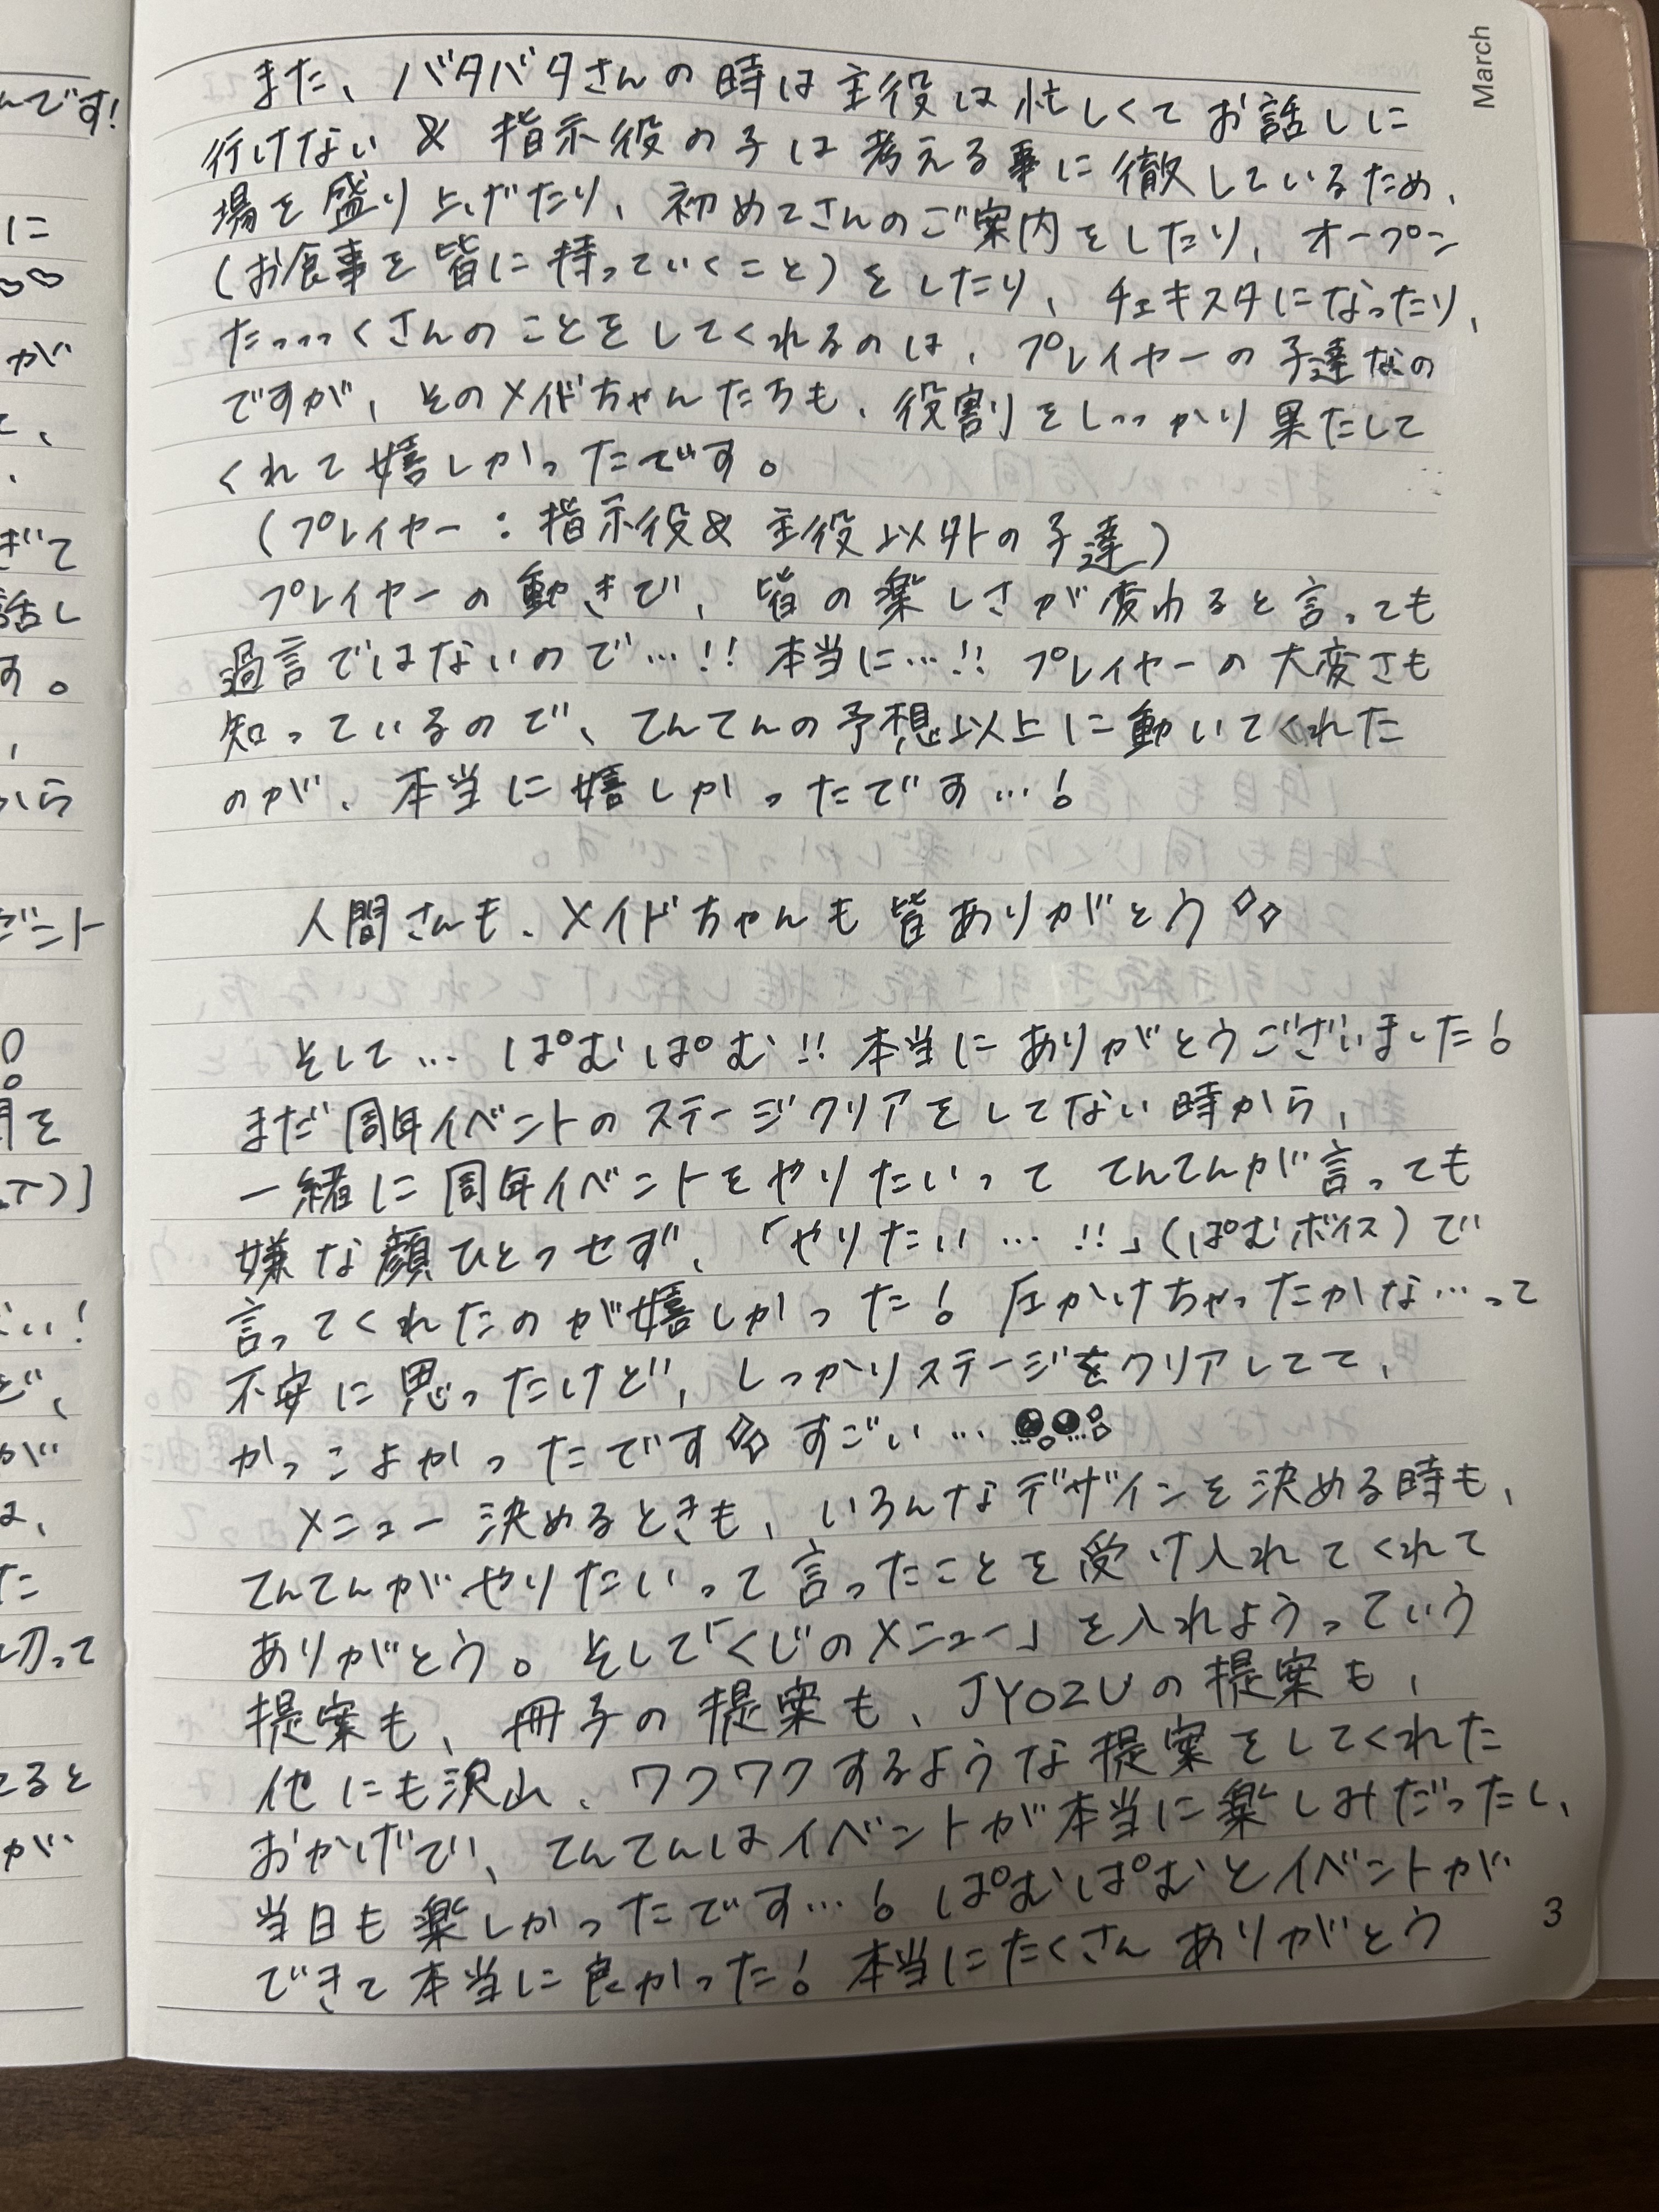 March
また、バタバタさんの時は主役は忙しくてお話しに
行けない & 指示役の子は考える事に徹しているため、
場を盛り上げたり、初めてさんのご案内をしたり、オープン
(お食事を皆に持っていくこと)をしたり、チェキスタになったり、
たっっっくさんのことをしてくれるのは、プレイヤーの子達なの
ですが、そのメイドちゃんたちも、役割をしっっかり果たして
くれて嬉しかったです。
(プレイヤー:指示役& 主役以外の子達)
プレイヤーの動きで、皆の楽しさが変わると言っても
過言ではないので…!! 本当に…!! プレイヤーの大変さも
知っているので、てんてんの予想以上に動いてくれた
のが、本当に嬉しかったです…!
人間さんも、メイドちゃんも皆ありがとう
そして… ぱむぱむ!! 本当にありがとうございました!
まだ周年イベントのステージクリアをしてない時から、
一緒に周年イベントをやりたいって てんてんが言っても
嫌な顔ひとつせず、「やりたい…!!」(ぱむボイス)で
言ってくれたのが嬉しかった! 圧かけちゃったかな…って
不安に思ったけど、しっかりステージをクリアしてて、
かっこよかったです すごい…
メニュー決めるときも、いろんなデザインを決める時も、
てんてんがやりたいって言ったことを受け入れてくれて
ありがとう。そして「くじのメニュー」を入れようっていう
提案も、冊子の提案も、JYOZUの提案も、
他にも沢山、ワクワクするような提案をしてくれた
おかげで、てんてんはイベントが本当に楽しみだったし、
当日も楽しかったです…! ぱむぱむとイベントが
できて本当に良かった! 本当にたくさんありがとう
3